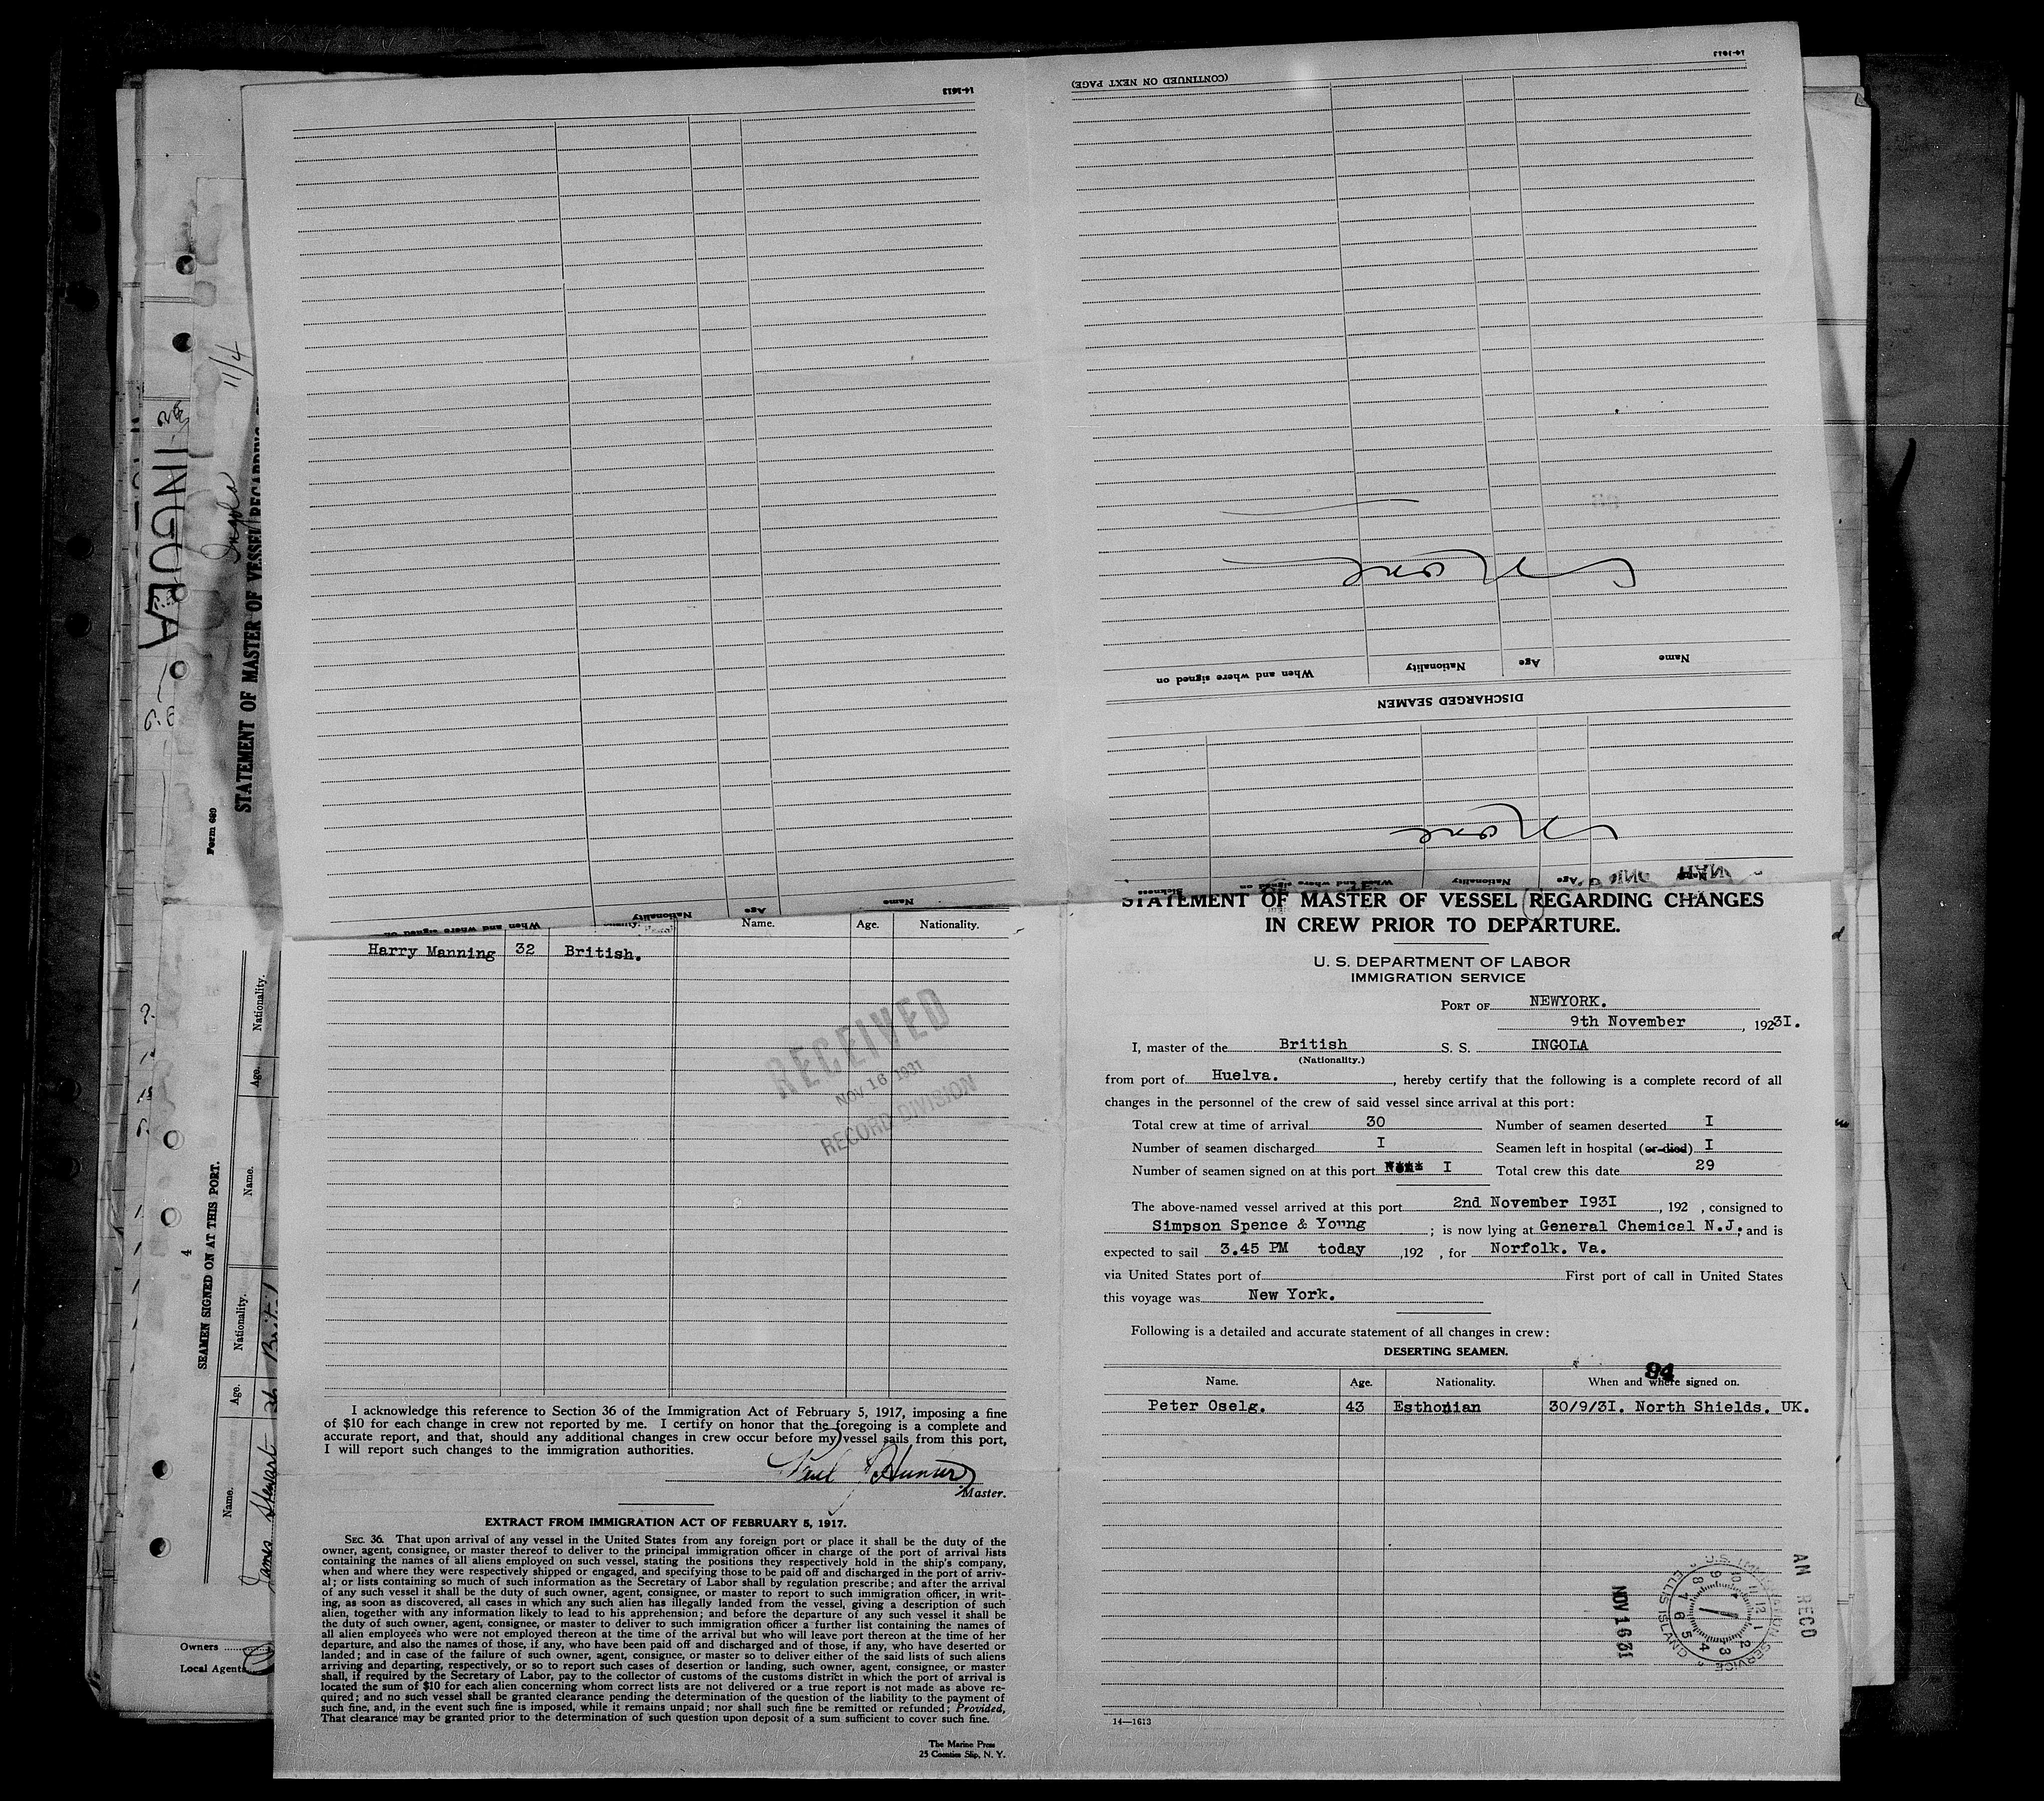 14-1613
14-1613
(CONTINUED ON NEXT PAGE)
None
When and where signed on
Nationality
Age
Name
DISCHARGED SEAMEN
None
Sickness
When and where signed on
Nationality
Age
Name
When and where signed on
Nationality
Age
Name
INGUBA
11/4
Ingola
Form 680
STATEMENT OF MASTER OF VESSEL REGARDING
4
SEAMEN SIGNED ON AT THIS PORT.
Name. Age. Nationality. Name. Age. Nationality.
James Stewart 26
Owners
Local Agents
Name. Age. Nationality.
Harry Manning 32 British.
RECEIVED
NOV 16 1931
RECORD DIVISION
I acknowledge this reference to Section 36 of the Immigration Act of February 5, 1917, imposing a fine
of $10 for each change in crew not reported by me. I certify on honor that the foregoing is a complete and
accurate report, and that, should any additional changes in crew occur before my vessel sails from this port,
I will report such changes to the immigration authorities.
Hunter
Master.
EXTRACT FROM IMMIGRATION ACT OF FEBRUARY 5, 1917.
SEC. 36. That upon arrival of any vessel in the United States from any foreign port or place it shall be the duty of the
owner, agent, consignee, or master thereof to deliver to the principal immigration officer in charge of the port of arrival lists
containing the names of all aliens employed on such vessel, stating the positions they respectively hold in the ship's company,
when and where they were respectively shipped or engaged, and specifying those to be paid off and discharged in the port of arriv-
al; or lists containing so much of such information as the Secretary of Labor shall by regulation prescribe; and after the arrival
of any such vessel it shall be the duty of such owner, agent, consignee, or master to report to such immigration officer, in writ-
ing, as soon as discovered, all cases in which any such alien has illegally landed from the vessel, giving a description of such
alien, together with any information likely to lead to his apprehension; and before the departure of any such vessel it shall be
the duty of such owner, agent, consignee, or master to deliver to such immigration officer a further list containing the names of
all alien employees who were not employed thereon at the time of the arrival but who will leave port thereon at the time of her
departure, and also the names of those, if any, who have been paid off and discharged and of those, if any, who have deserted or
landed; and in case of the failure of such owner, agent, consignee, or master so to deliver either of the said lists of such aliens
arriving and departing, respectively, or so to report such cases of desertion or landing, such owner, agent, consignee, or master
shall, if required by the Secretary of Labor, pay to the collector of customs of the customs district in which the port of arrival is
located the sum of $10 for each alien concerning whom correct lists are not delivered or a true report is not made as above re-
quired; and no such vessel shall be granted clearance pending the determination of the question of the liability to the payment of
such fine, and, in the event such fine is imposed, while it remains unpaid; nor shall such fine be remitted or refunded; Provided,
That clearance may be granted prior to the determination of such question upon deposit of a sum sufficient to cover such fine.
The Marine Press
25 Coenties Slip, N. Y.
STATEMENT OF MASTER OF VESSEL REGARDING CHANGES
IN CREW PRIOR TO DEPARTURE.
U. S. DEPARTMENT OF LABOR
IMMIGRATION SERVICE
PORT OF NEWYORK.
9th November, 19231.
I, master of the British S. S. INGOLA
(Nationality.)
from port of Huelva., hereby certify that the following is a complete record of all
changes in the personnel of the crew of said vessel since arrival at this port:
Total crew at time of arrival 30 Number of seamen deserted I
Number of seamen discharged I Seamen left in hospital (or died) I
Number of seamen signed on at this port I Total crew this date 29
The above-named vessel arrived at this port 2nd November I93I, 192 , consigned to
Simpson Spence & Young; is now lying at General Chemical N.J.; and is
expected to sail 3.45 PM today ,192 , for Norfolk. Va.
via United States port of First port of call in United States
this voyage was New York.
Following is a detailed and accurate statement of all changes in crew:
DESERTING SEAMEN.
94
Name. Age. Nationality. When and where signed on.
Peter Oselg. 43 Esthonian 30/9/3I. North Shields. UK.
AM RECD
NOV 16 31
U.S. IMMIGRATION SERVICE
ELLIS ISLAND
12 1 2 3 4 5 6 7 8 9 10 11
14—1613